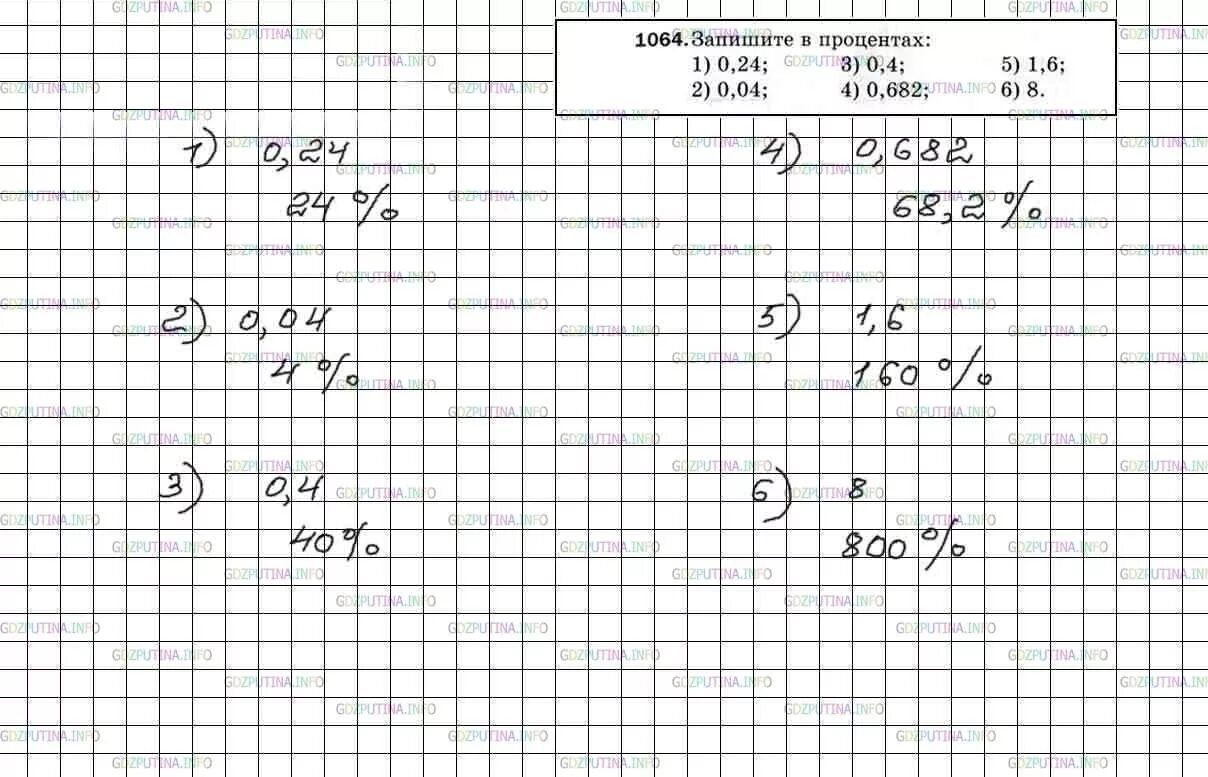 1064. Запишите в процентах:
1) 0,24; 3) 0,4; 5) 1,6;
2) 0,04; 4) 0,682; 6) 8.
1) 0,24
24 %
2) 0,04
4 %
3) 0,4
40 %
4) 0,682
68,2 %
5) 1,6
160 %
6) 8
800 %
GDZPUTINA.INFO